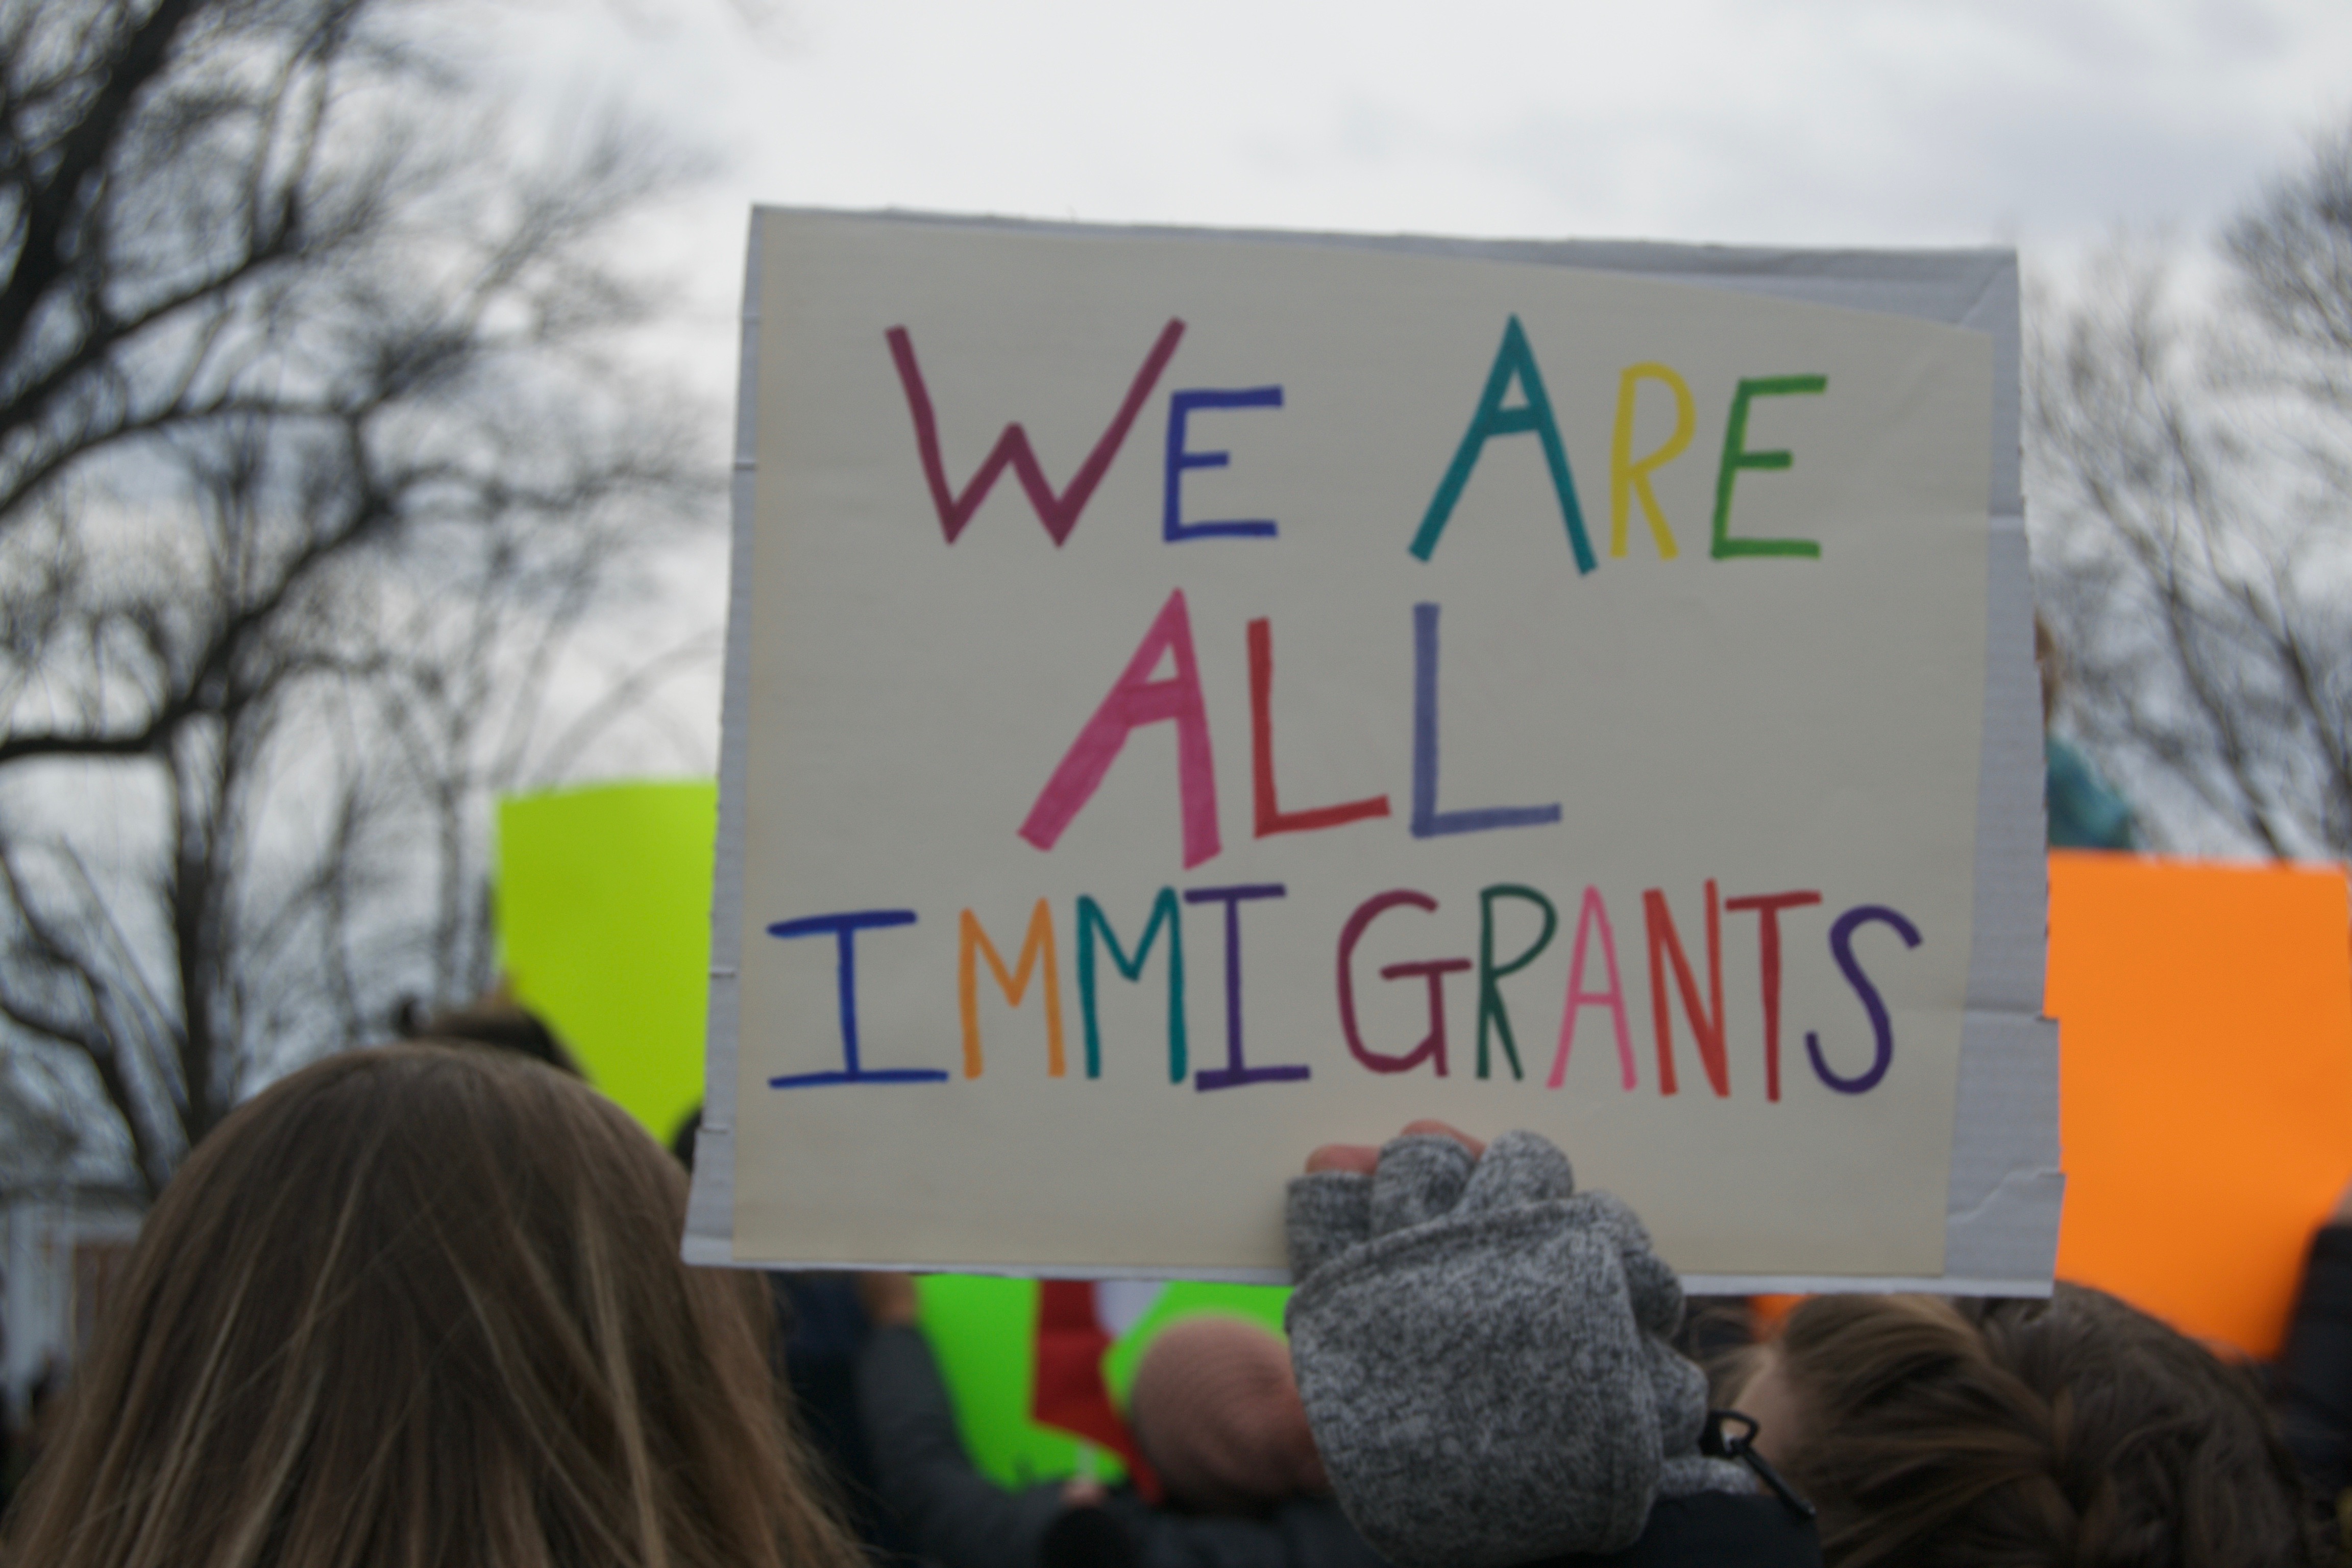 WE ARE
ALL
IMMIGRANTS